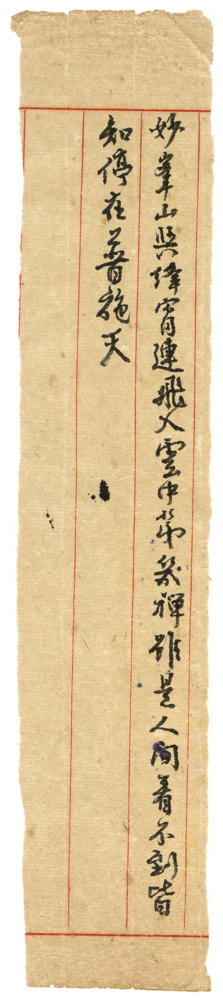 妙峯山與絳霄連飛入雲中第幾禪雖是人間看不到皆
知停在菩薩天